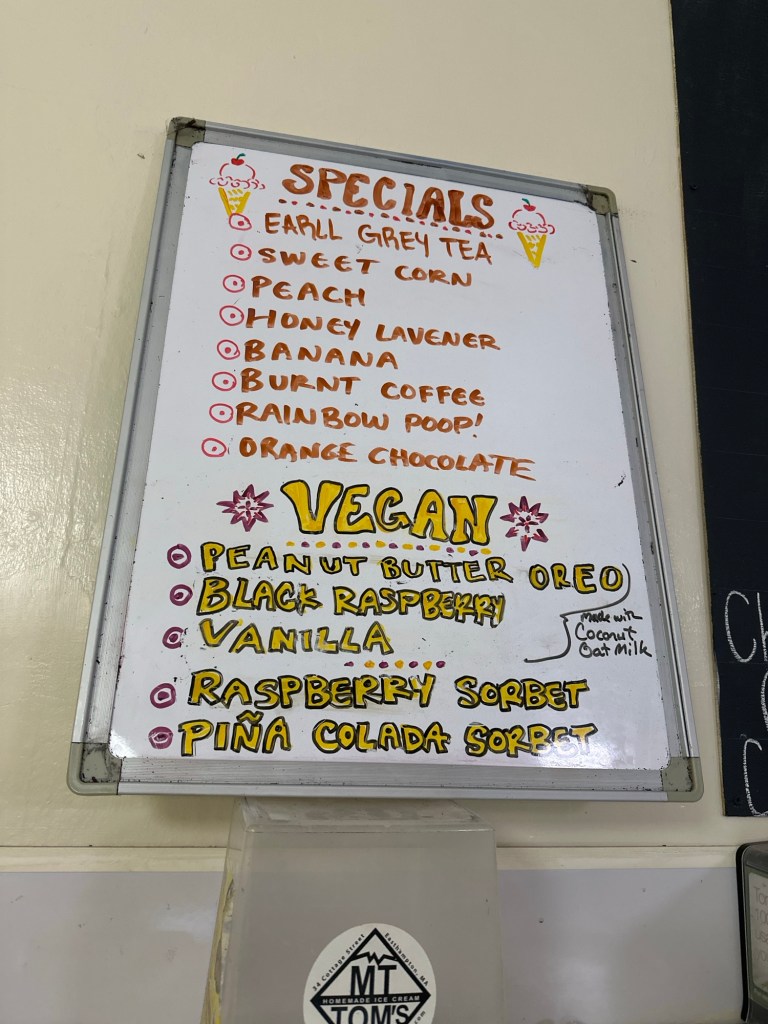 SPECIALS
EARLL GREY TEA
SWEET CORN
PEACH
HONEY LAVENER
BANANA
BURNT COFFEE
RAINBOW POOP!
ORANGE CHOCOLATE
VEGAN
PEANUT BUTTER OREO
BLACK RASPBERRY
VANILLA
made with
Coconut
Oat Milk
RASPBERRY SORBET
PIÑA COLADA SORBET
34 Cottage Street Easthampton, MA
MT
HOMEMADE ICE CREAM
TOM'S